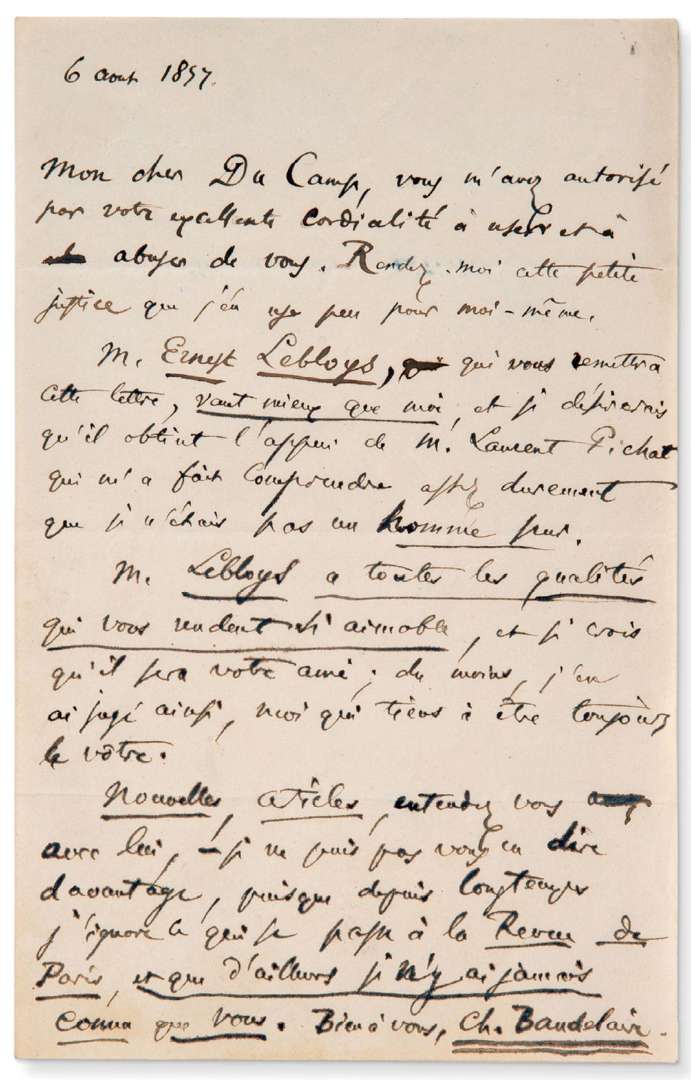 6 aout 1857.
Mon cher Du Camp, vous m'avez autorisé
par votre excellente cordialité à user et à
abuser de vous. Rendez-moi cette petite
justice que j'en use peu pour moi-même.
M. Ernest Lebloys, qui vous remettra
cette lettre, vaut mieux que moi, et je désirerais
qu'il obtint l'appui de M. Laurent Pichat
qui m'a fait comprendre assez durement
que je n'étais pas un homme pur.
M. Lebloys a toutes les qualités
qui vous rendent si aimable, et je crois
qu'il sera votre ami ; du moins, j'en
ai jugé ainsi, moi qui tiens à être toujours
le vôtre.
Nouvelles, articles, entendez vous
avec lui, – je ne puis pas vous en dire
davantage, puisque depuis longtemps
j'ignore ce qui se passe à la Revue de
Paris, et que d'ailleurs je n'y ai jamais
connu que vous. Bien à vous, Ch. Baudelaire.